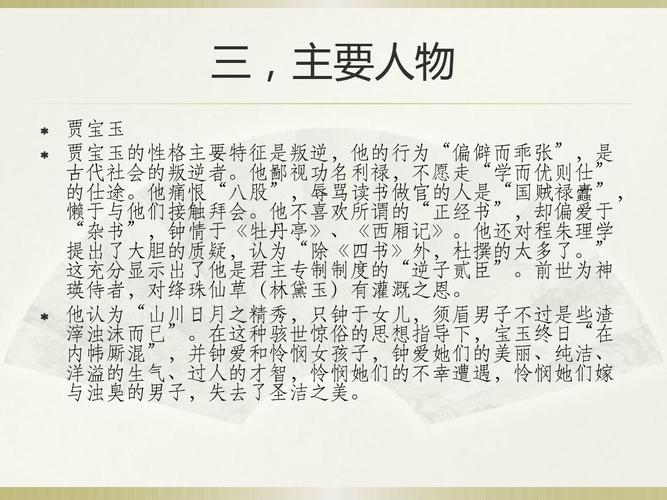 三，主要人物
贾宝玉
贾宝玉的性格主要特征是叛逆，他的行为“偏僻而乖张”，是
古代社会的叛逆者。他鄙视功名利禄，不愿走“学而优则仕”
的仕途。他痛恨“八股”，辱骂读书做官的人是“国贼禄蠹”，
懒于与他们接触拜会。他不喜欢所谓的“正经书”，却偏爱于
“杂书”，钟情于《牡丹亭》、《西厢记》。他还对程朱理学
提出了大胆的质疑，认为“除《四书》外，杜撰的太多了。”
这充分显示出了他是君主专制制度的“逆子贰臣”。前世为神
瑛侍者，对绛珠仙草（林黛玉）有灌溉之恩。
他认为“山川日月之精秀，只钟于女儿，须眉男子不过是些渣
滓浊沫而已”。在这种骇世惊俗的思想指导下，宝玉终日“在
内帏厮混”，并钟爱和怜悯女孩子，钟爱她们的美丽、纯洁、
洋溢的生气、过人的才智，怜悯她们的不幸遭遇，怜悯她们嫁
与浊臭的男子，失去了圣洁之美。